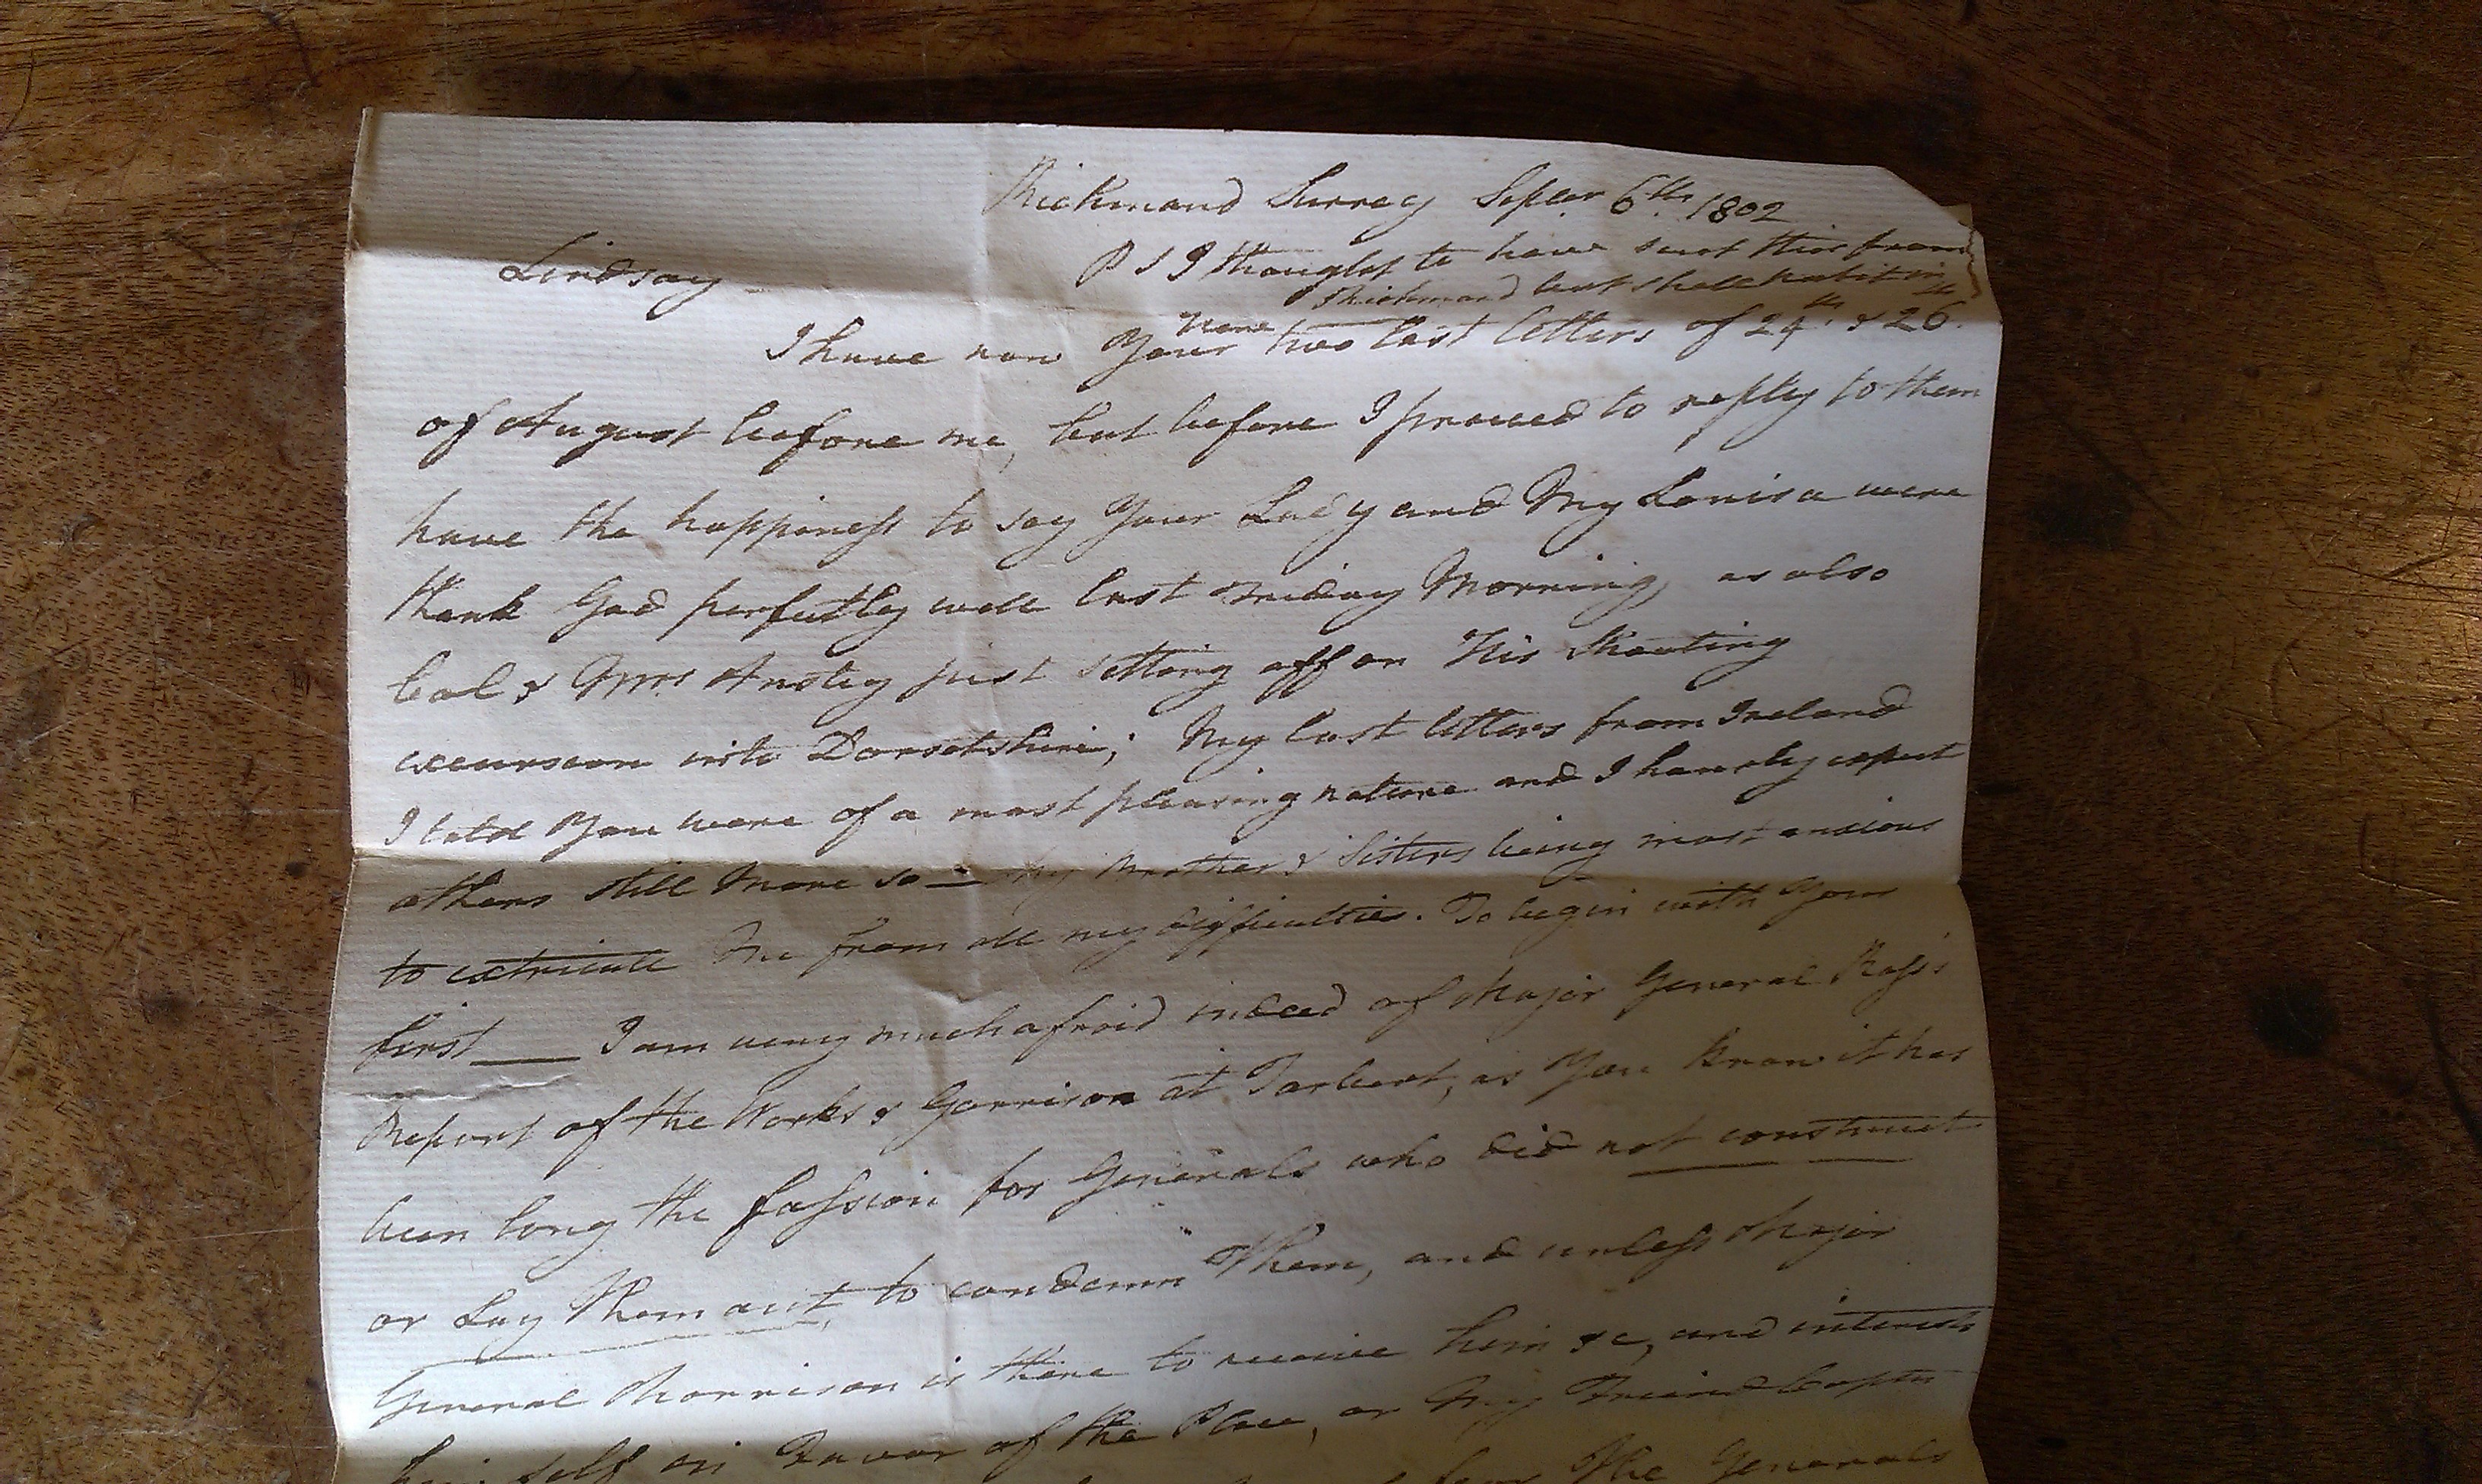 Richmond Surrey Septer 6th. 1802
P S I thought to have sent this from
Richmond but shall put it in
Lindsay
here
I have now Your two last letters of 24th. & 26th.
of August before me, but before I proceed to reply to them
have the happiness to say Your Lady and My Louisa were
thank God perfectly well last Friday Morning, as also
Col & Mrs Anstey just setting off on His Shooting
excursion into Dorsetshire; My last letters from Ireland
I told You were of a most pleasing nature and I hourly expect
others still more so — My Brother & Sisters being most anxious
to extricate Me from all my difficulties. To begin with Your
first — I am very much afraid indeed of Major General Ross's
Report of the Works & Garrison at Tarbert, as You know it has
been long the fassion for Generals who did not construct
or Lay Them out, to condemn Them, and unless Major
General Morrison is there to receive him &c, and interests
him self in Favor of the Place, or My Friend Captn
The Generals